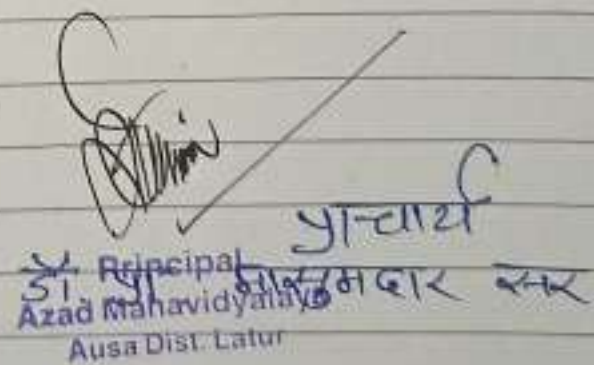 प्राचार्य
डॉ. सर
Principal
Azad Mahavidyalaya
Ausa Dist. Latur